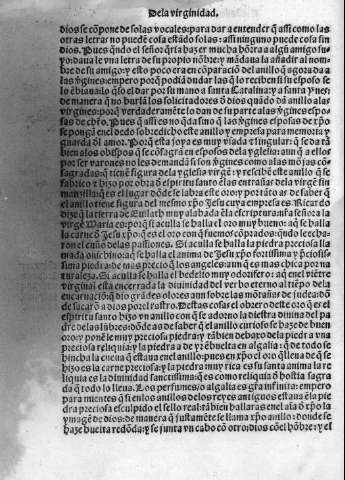 De la virginidad.
dios se cõpone de solas vocales: para dar a entender q̃ assi como las
otras letras no puede cosa estado solas: assi ninguno puede cosa sin
dios. Pues q̃ndo el señor q̃ria hazer mucha hõrra a algũ amigo su
yo: daua le vna letra de su propio nõbre: y mãdaua la añadir al nom
bre de su amigo: y esto poco era en cõparaciõ del anillo q̃ agora da a
las virgines: empero porq̃ podia dudar las q̃ lo reciben si su esposo se
lo ebiauà
de manera q̃ no burlã los solicitadores
virgines: porq̃ verdaderamẽte lo dan de su parte a las virgines espo
sas de xp̃o.
se ponga en el dedo sobredicho este anillo y empresa para memoria y
guarda dl amor. Porq̃ esta joya es muy vsada y singular: q̃ se da tã
bien a los obispos q̃ se cõsagrã en esposos de la yglesia: aun q̃ a ellos
por ser varones no les demandã son virgines como a las mõjas cõ
sagradas: q̃ tienẽ figura de la yglesia virgẽ: y recibẽ este anillo q̃ se
fabrico e hizo por obra dl espiritu santo en las entrañas dela virgẽ sin
manzilla: q̃ es el lugar dõde se labra este oro: y por tãto es de saber q̃
el anillo tiene figura del mesmo xp̃o Jesu cuya empresa es. Ricardo
dize q̃ la tierra de Euilath muy alabada en la escriptura nr̃a señora la
virgẽ Maria es: porq̃ si aculla se halla el oro muy bueno: aq̃ se halla
la carne d̃ Jesu xp̃o: q̃ es el oro con q̃ fuemos cõprados: q̃ndo le echa
ron el cuño de las passiones. Si aculla se halla la piedra preciosa lla
mada onichino: aq̃ se halla el anima de Jesu xp̃o fortissima y preciosis
sima piedra: de mas precio q̃ los angeles aun q̃ es mas chica por na
turaleza. Si aculla se halla el bedelio muy odorifero: aq̃ en el viẽtre
virginal esta encerrada la diuinidad del verbo eterno al tiẽpo dela
encarnaciõ: q̃ dio grãdes olores aun sobre las mõtañas de judea: dõ
de sacarõ a dios por el rastro. Destas cosas el obrero deste oro q̃ es el
espiritu santo hizo vn anillo con q̃ se adorna la diestra diuina del pa
dre de las lũbres: dõde as de saber q̃ el anillo curioso se haze de buen
oro: y ponẽ le muy preciosa piedra: y tãbien debaxo dela piedra vna
preciosa reliquia: y la piedra a de yr ẽbuelta en algalia: q̃ de todo se
hincha la cuenca q̃ estaua en el anillo: pues en xp̃o el oro q̃ llena de q̃ se
hizo es la carne preciosa: y la piedra muy rica es su santa anima la re
liquia es la diuinidad sanctissima: q̃ es como reliquia o hostia sagra
da q̃ todo lo llena. Los perfumes o algalia es gr̃a infinita: empero
para mientes q̃ si en los anillos de los reyes antiguos estaua en la pie
dra preciosa esculpido el sello real: tãbien hallaras en el aĩa d̃ xp̃o la
ymagẽ de dios: de manera q̃ justamẽte se llama xp̃o anillo: donde se
haze buelta redõda: y se junta vn cabo cõ otro: dios cõ el hõbre: y el